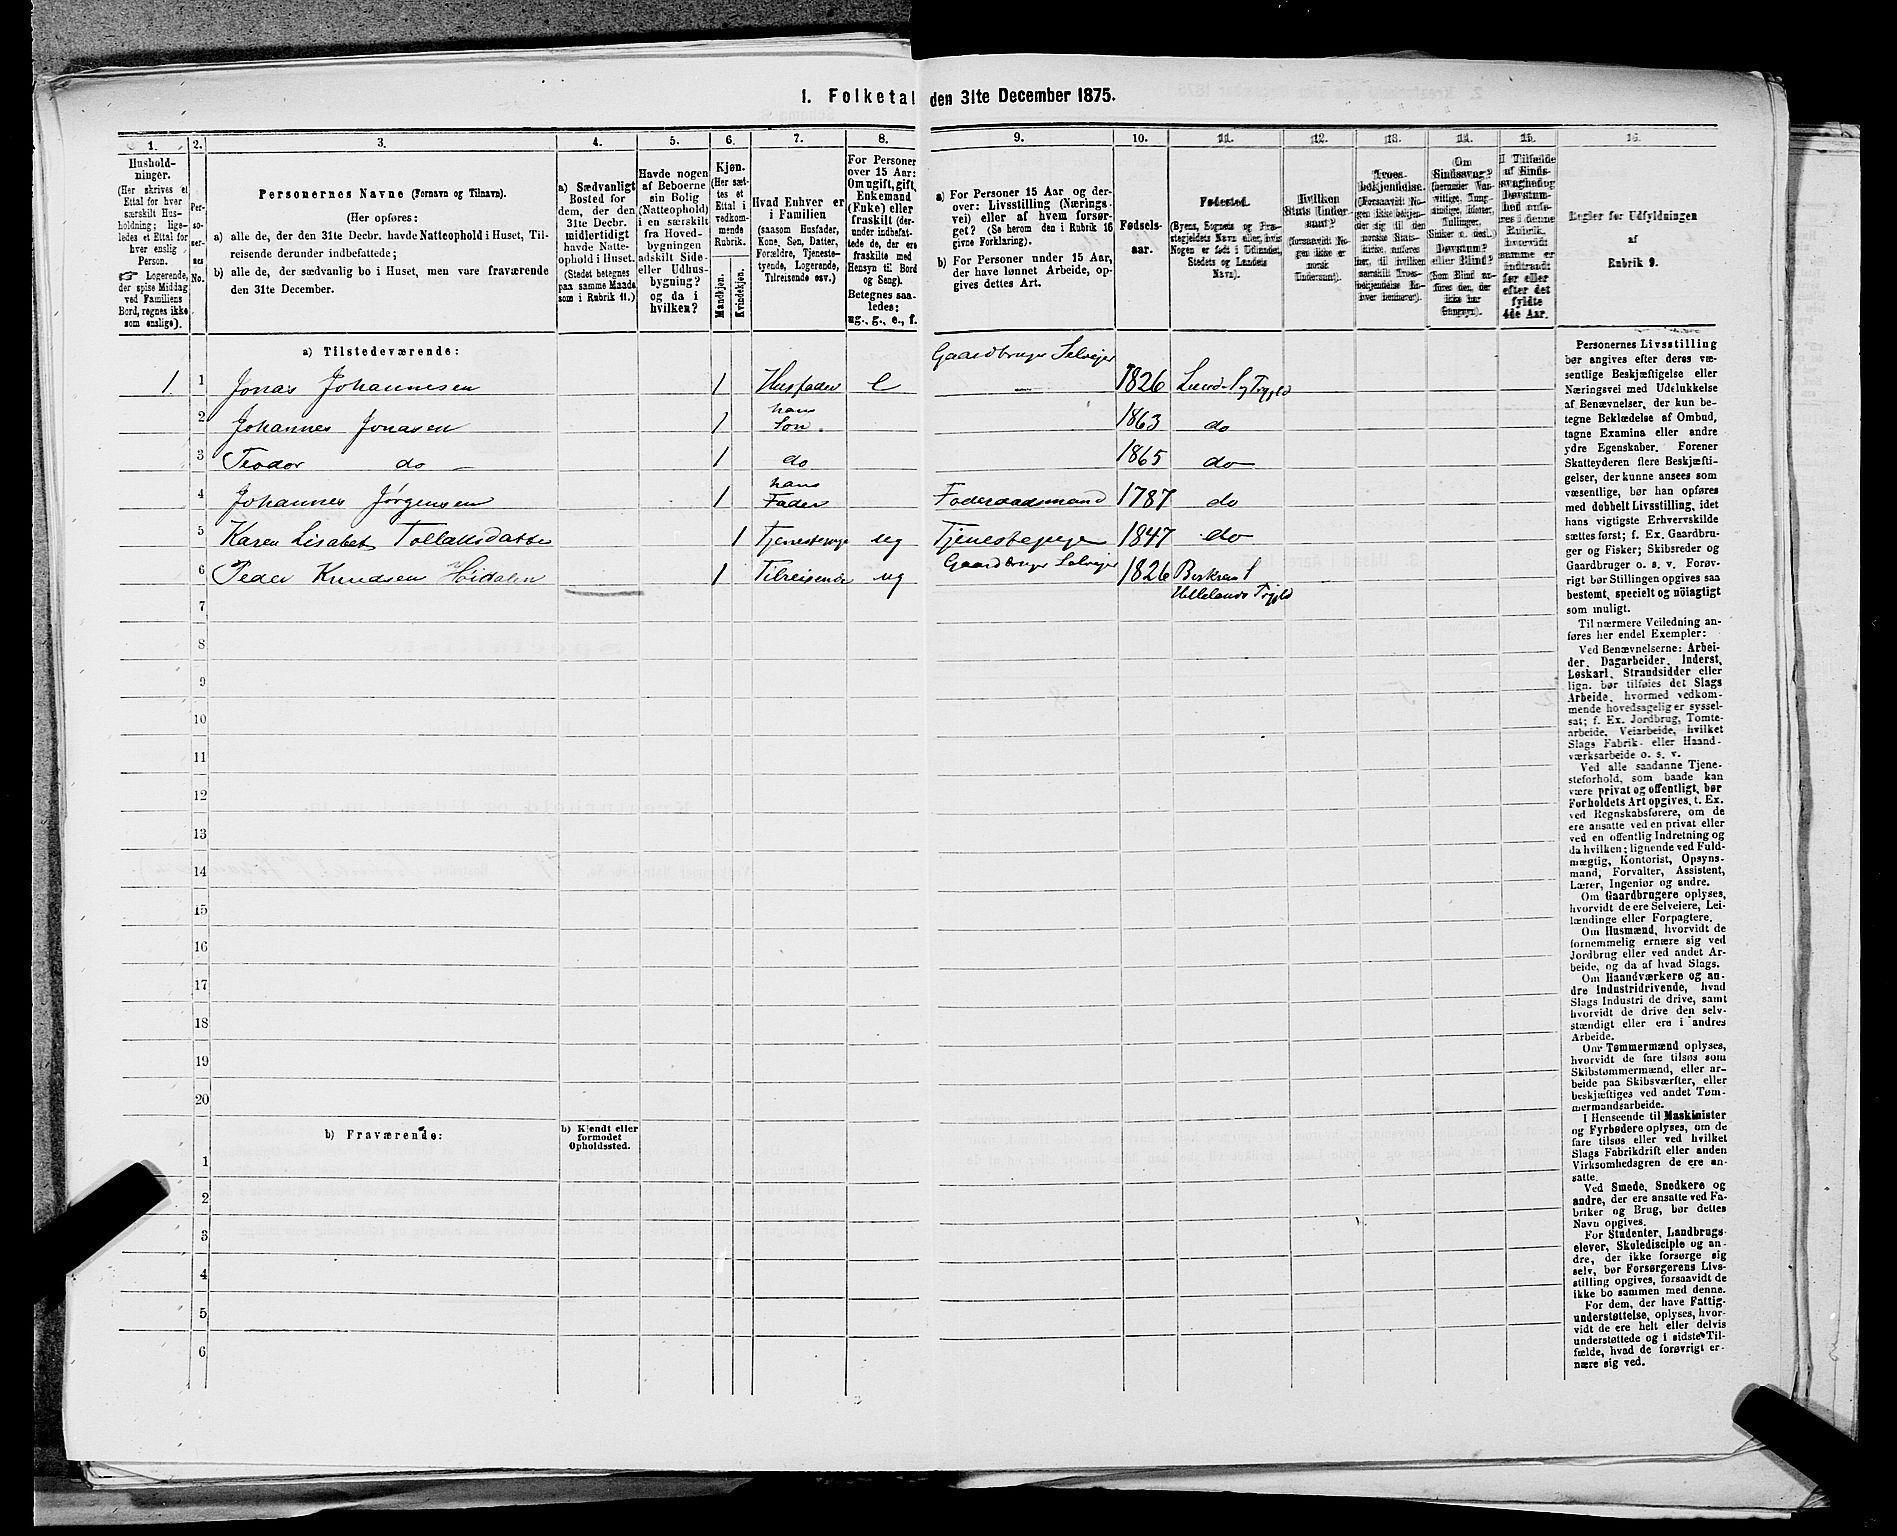 1. Folketal den 31te December 1875.
1. 2. 3. 4. 5. 6. 7. 8. 9. 10. 11. 12. 13. 14. 15. 16.
Hushold-
ninger.
(Her skrives et
Ettal for hver
særskilt Hus-
holdning; lige-
ledes et Ettal for
hver enslig
Person.
☞ Logerende,
der spise Middag
ved Familiens
Bord, regnes ikke
som enslige).
Per-
so-
ner-
nes
No.
Personernes Navne (Fornavn og Tilnavn).
(Her opføres:
a) alle de, der den 31te Decbr. havde Natteophold i Huset, Til-
reisende derunder indbefattede;
b) alle de, der sædvanlig bo i Huset, men vare fraværende
den 31te December.
a) Sædvanligt
Bosted for
dem, der den
31te Decbr.
midlertidigt
havde Natte-
ophold i Huset.
(Stedet betegnes
paa samme Maade
som i Rubrik 11.)
Havde nogen
af Beboerne
sin Bolig
(Natteophold)
i en særskilt
fra Hoved-
bygningen
adskilt Side-
eller Udhus-
bygning?
og da i
hvilken?
Kjøn.
(Her sæt-
tes et
Ettal i
vedkom-
mende
Rubrik.
Mandkjøn.
Kvindekjøn.
Hvad Enhver er
i Familien
(saasom Husfader,
Kone, Søn, Datter,
Forældre, Tjeneste-
tyende, Logerende,
Tilreisende osv.)
For Personer
over 15 Aar:
Om ugift, gift,
Enkemand
(Enke) eller
fraskilt (der-
under indbefat-
tede de, der ere
fraskilte med
Hensyn til Bord
og Seng).
Betegnes saa-
ledes:
ug., g., e., f.
a) For Personer 15 Aar og der-
over: Livsstilling (Nærings-
vei) eller af hvem forsør-
get? (Se herom den i Rubrik 16
givne Forklaring).
b) For Personer under 15 Aar,
der have lønnet Arbeide, op-
gives dettes Art.
Fødsels-
aar.
Fødested.
(Byens, Sognets og Præ-
stegjeldets Navn eller, hvis
Nogen er født i Udlandet,
Stedets og Landets
Navn).
Hvilken
Stats Under-
saat?
(forsaavidt No-
gen ikke er
norsk
Undersaat).
Troes-
bekjendelse.
(Forsaavidt No-
gen ikke bekjen-
der sig til den
norske Stats-
kirke, anføres
her, til hvilken
særskilt Troes-
bekjendelse En-
hver henhører).
Om
Sindssvag?
(herunder Van-
vittige, Tung-
sindige, Idioter,
Tullinger,
Sinker o. desl.).
Døvstum?
eller Blind?
(Som Blind an-
føres den, der
ikke har
Gangsyn).
I Tilfælde
af Sinds-
svaghed og
Døvstum-
hed anfø-
res i denne
Rubrik,
hvorvidt
samme er
indtraadt
før eller
efter det
fyldte
4de Aar.
Regler for Udfyldningen
af
Rubrik 9.
a) Tilstedeværende:
Gaardbruger Selveier
1 1 Jonas Johannesen 1 Husfader e — 1826
2 Johannes Jonasen 1 hans Søn. 1863 do
3 Teodor do — 1 do 1865 do
4 Johannes Jørgensen 1 hans Fader Føderaadsmand 1787 do
5 Karen Lisabet Tollaksdatter 1 Tjenestepige ug Tjenestepige 1847 do
6 Peder Knudsen Høidalen 1 Tilreisende ug Gaardbruger Selveier 1826
7
8
9
10
11
12
13
14
15
16
17
18
19
20
b) Fraværende:
b) Kjendt eller
formodet
Opholdssted.
1
2
3
4
5
6
Personernes Livsstilling
bør angives efter deres væ-
sentlige Beskjæftigelse eller
Næringsvei med Udelukkelse
af Benævnelser, der kun be-
tegne Beklædelse af Ombud,
tagne Examina eller andre
ydre Egenskaber. Forener
Skatteyderen flere Beskjæfti-
gelser, der kunne ansees som
væsentlige, bør han opføres
med dobbelt Livsstilling, idet
hans vigtigste Erhvervskilde
sættes først; f. Ex. Gaardbru-
ger og Fisker; Skibsreder og
Gaardbruger o. s. v. Forøv-
rigt bør Stillingen opgives saa
bestemt, specielt og nöiagtigt
som muligt.
Til nærmere Veiledning an-
føres her endel Exempler:
Ved Benævnelserne: Arbei-
der, Dagarbeider, Inderst,
Løskarl, Strandsidder eller
lign. bør tilføies det Slags
Arbeide, hvormed vedkom-
mende hovedsagelig er syssel-
sat; f. Ex. Jordbrug, Tomte-
arbeide, Veiarbeide, hvilket
Slags Fabrik- eller Haand-
værksarbeide o. s. v.
Ved alle saadanne Tjene-
steforhold, som baade kan
være privat og offentligt, bør
Forholdets Art opgives, t. Ex.
ved Regnskabsførere, om de
ere ansatte ved en privat eller
ved en offentlig Indretning og
da hvilken; lignende ved Fuld-
mægtig, Kontorist, Opsyns-
mand, Forvalter, Assistent,
Lærer, Ingeniør og andre.
Om Gaardbrugere oplyses,
hvorvidt de ere Selveiere, Lei-
lændinge eller Forpagtere.
Om Husmænd, hvorvidt de
fornemmelig ernære sig ved
Jordbrug eller ved andet Ar-
beide, og da af hvad Slags.
Om Haandværkere og an-
dre Industridrivende, hvad
Slags Industri de drive, samt
hvorvidt de drive den selv-
stændigt eller ere i andres
Arbeide.
Om Tømmermænd oplyses,
hvorvidt de fare tilsøs som
Skibstømmermænd, eller ar-
beide paa Skibsværfter, eller
beskjæftiges ved andet Tøm-
mermandsarbeide.
I Henseende til Maskinister
og Fyrbødere oplyses, om de
fare tilsøs eller ved hvilket
Slags Fabrikdrift eller anden
Virksomhedsgren de ere an-
satte.
Ved Smede, Snedkere og
andre, der ere ansatte ved Fa-
briker og Brug, bør dettes
Navn opgives.
For Studenter, Landbrugs-
elever, Skoledisciple og an-
dre, der ikke forsørge sig
selv, bør Forsørgerens Livs-
stilling opgives, forsaavidt de
ikke bo sammen med denne.
For dem, der have Fattig-
understøttelse, oplyses, hvor-
vidt de ere helt eller delvis
understøttede og i sidste Til-
fælde, hvad de forøvrigt er-
nære sig ved.